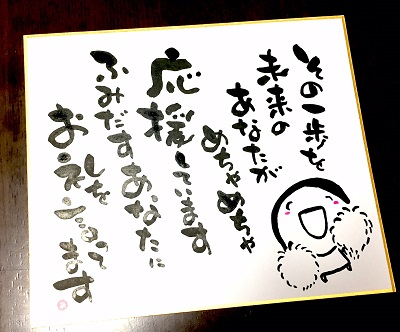 その一歩を
未来の
あなたが
めちゃめちゃ
応援しています
ふみだすあなたに
しを
おネごめて
ます